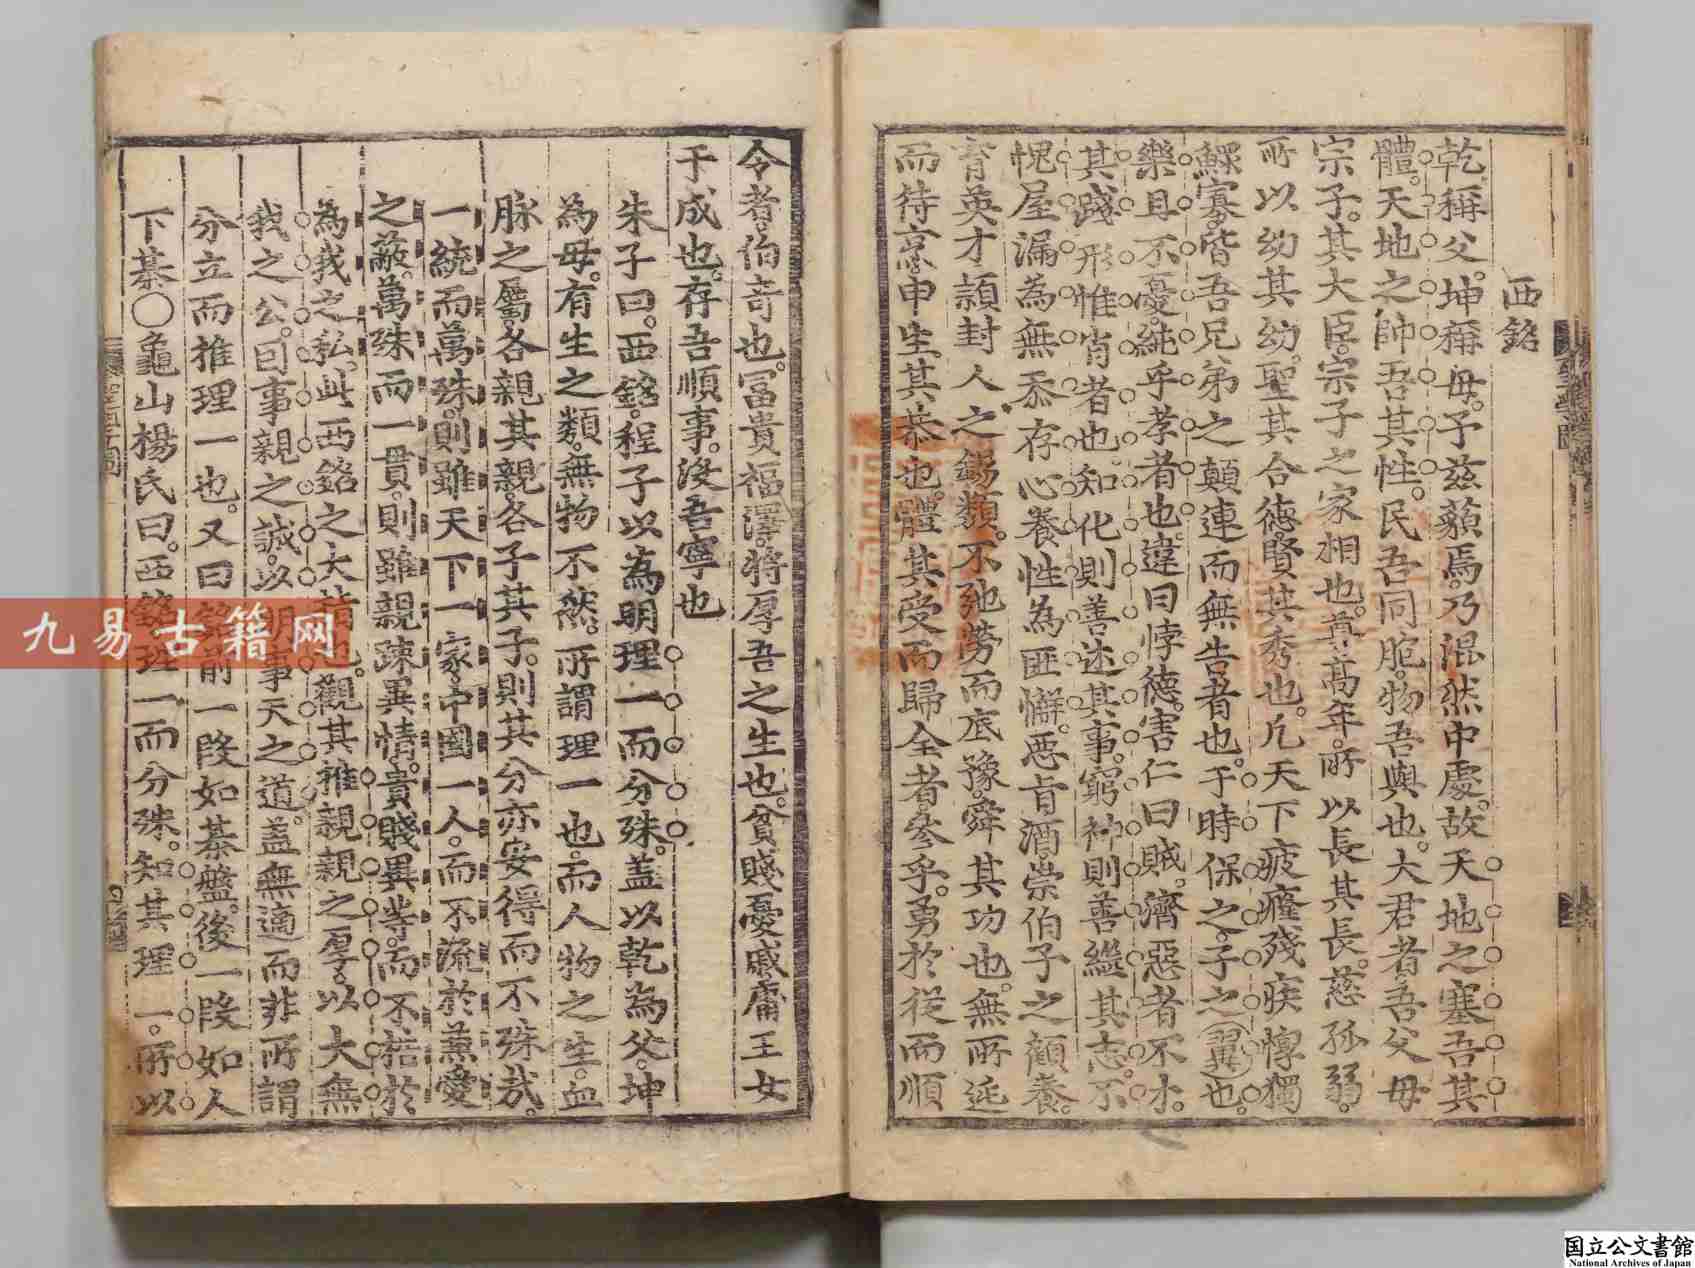 西銘
乾稱父。坤稱母。予茲藐焉。乃混然中處。故天地之塞吾其
體。天地之帥吾其性。民吾同胞。物吾與也。大君者。吾父母
宗子。其大臣。宗子之家相也。尊高年。所以長其長。慈孤弱。
所以幼其幼。聖其合德。賢其秀也。凡天下疲癃殘疾惸獨
鰥寡。皆吾兄弟之顛連而無告者也。于時保之。子之翼也。
樂且不憂。純乎孝者也。違曰悖德。害仁曰賊。濟惡者不才。
其踐形惟肖者也。知化則善述其事。窮神則善繼其志。不
愧屋漏為無忝。存心養性為匪懈。惡旨酒崇伯子之顧養。
育英才穎封人之錫類。不弛勞而底豫。舜其功也。無所逃
而待烹。申生其恭也。體其受而歸全者。參乎。勇於從而順
令者。伯奇也。冨貴福澤。將厚吾之生也。貧賤憂戚。庸玉女
于成也。存吾順事。沒吾寧也
朱子曰。西銘。程子以為明理一而分殊。盖以乾為父。坤
為母。有生之類。無物不然。所謂理一也。而人物之生。血
脉之屬。各親其親。各子其子。則其分亦安得而不殊哉。
一統而萬殊。則雖天下一家。中國一人。而不流於兼愛
之蔽。萬殊而一貫。則雖親疎異情。貴賤異等。而不梏於
為我之私。此西銘之大指也。觀其推親親之厚。以大無
我之公。因事親之誠。以明事天之道。盖無適而非所謂
分立而推理一也。又曰。銘前一段如棊盤。後一段如人
下棊○龜山楊氏曰。西銘理一而分殊。知其理一。所以
九易古籍网
国立公文書館
National Archives of Japan